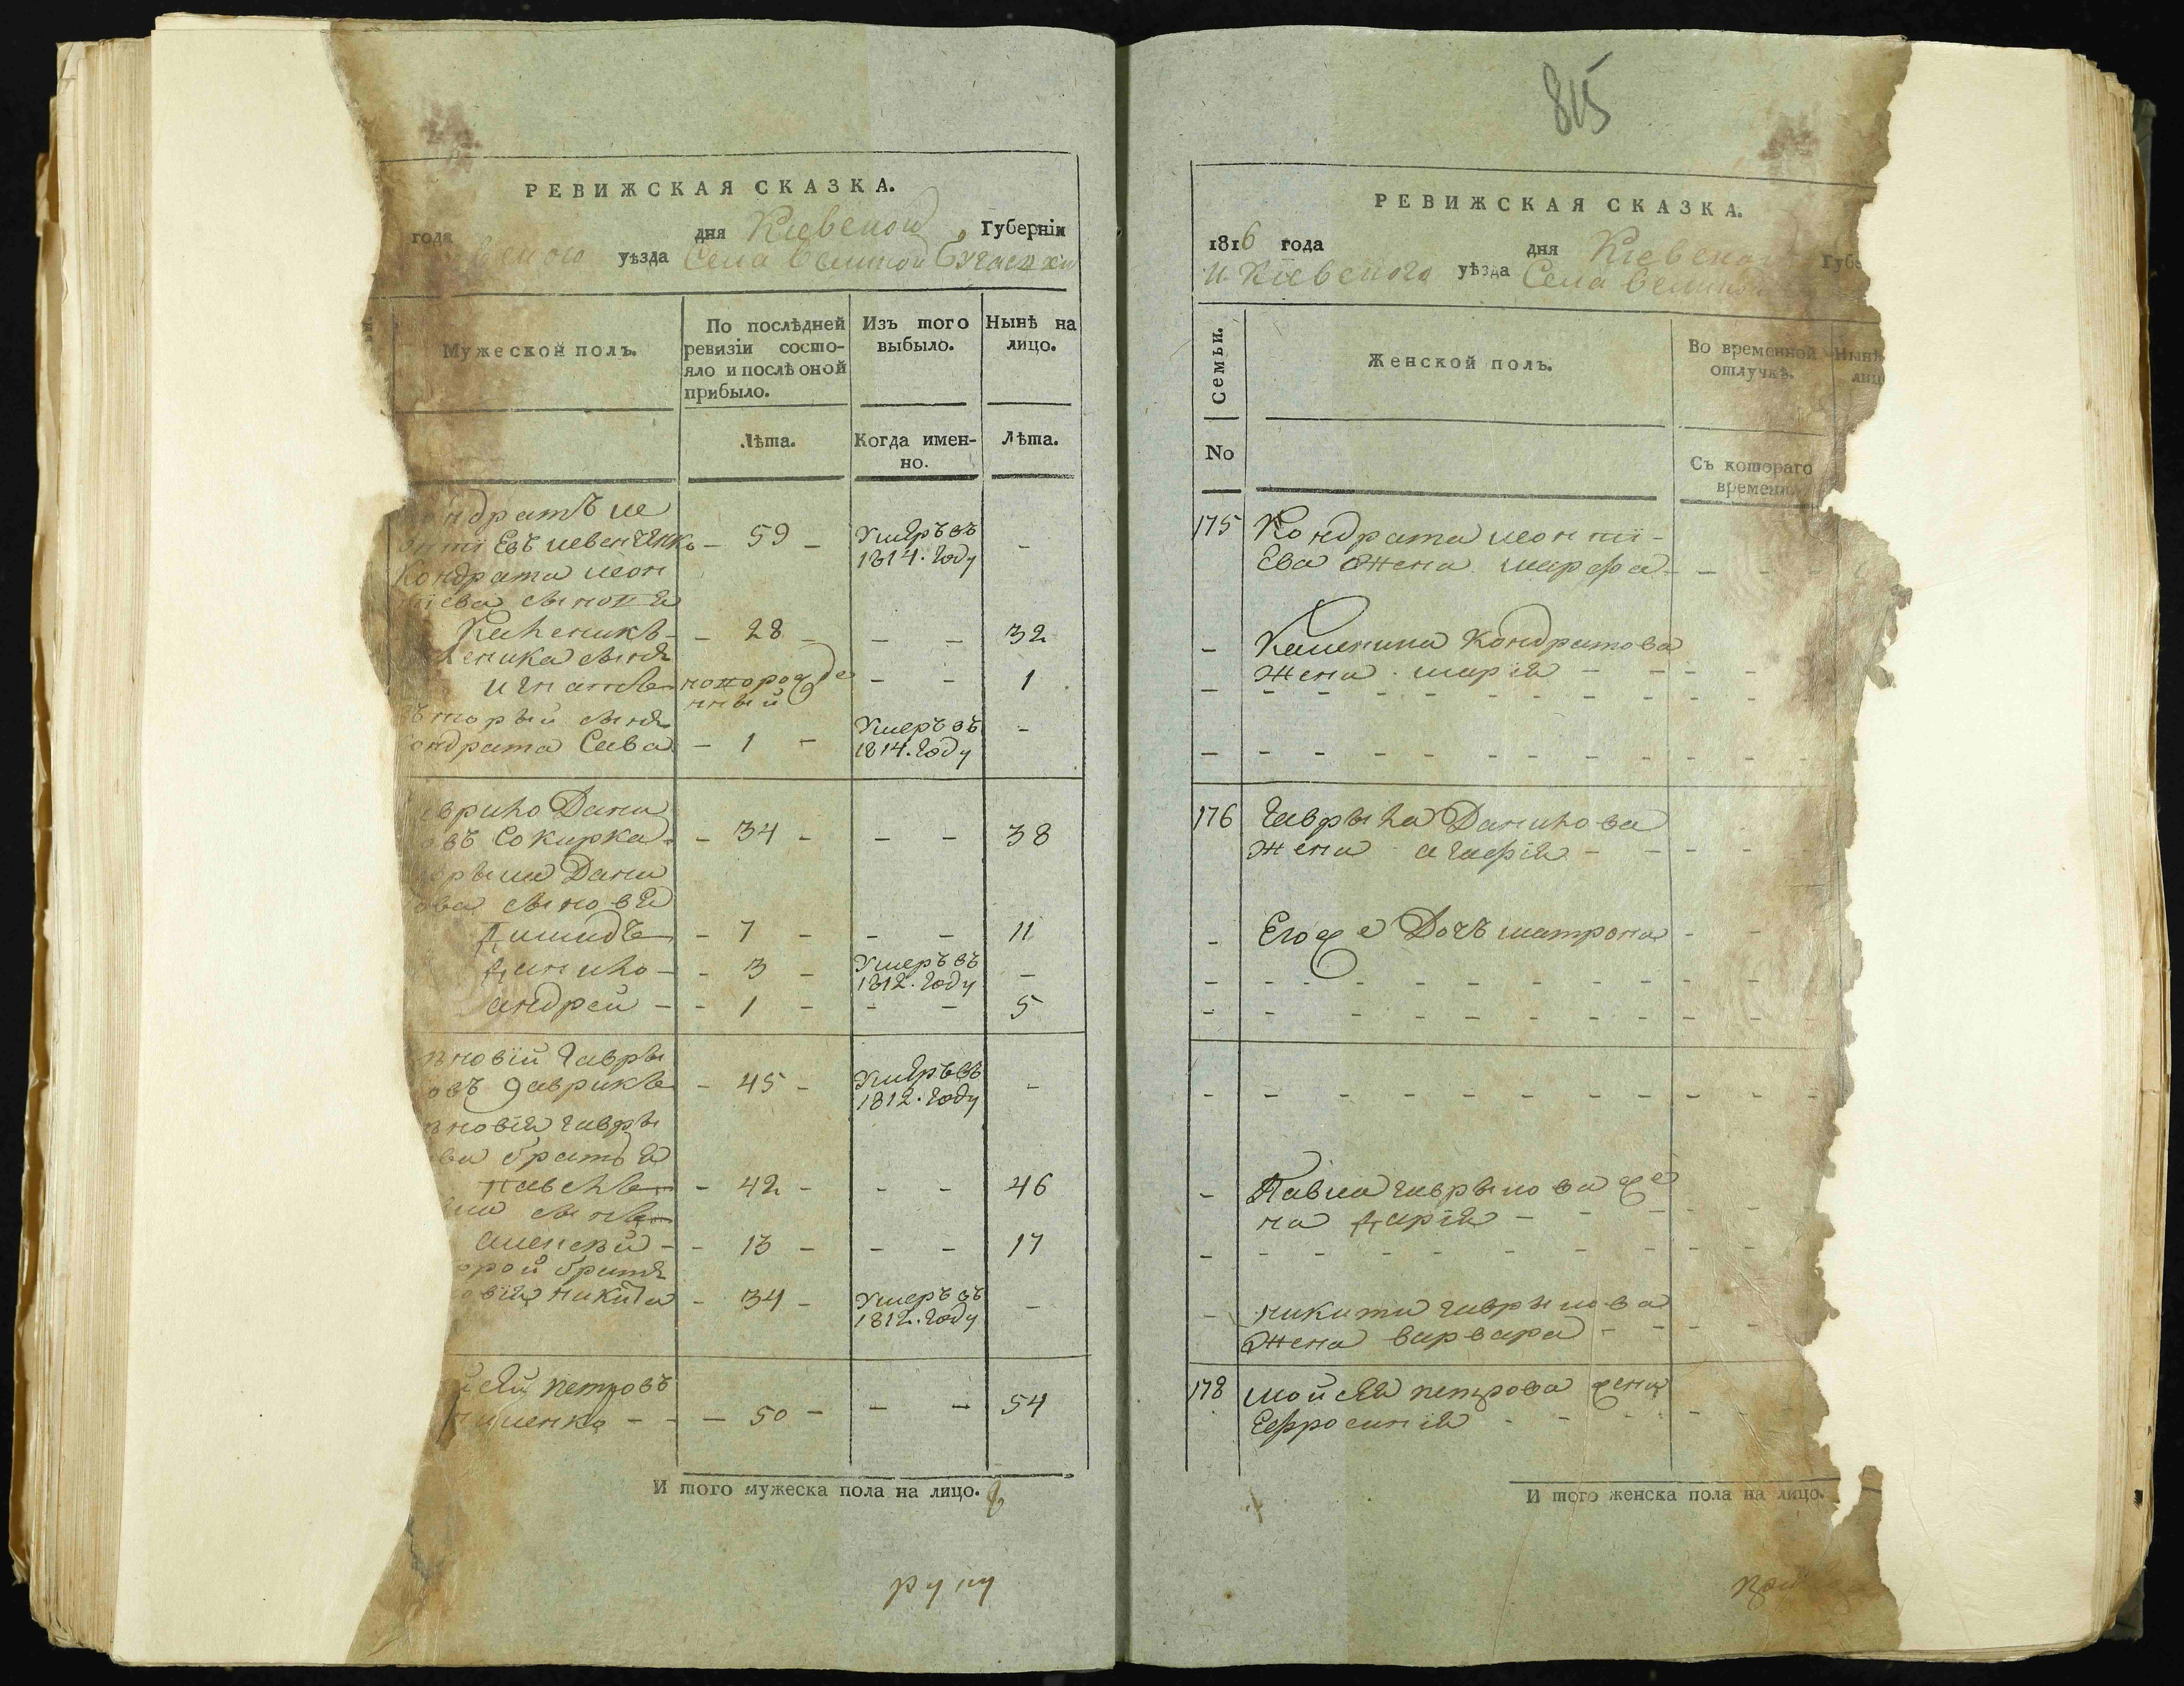 РЕВИЖСКАЯ СКАЗКА.
года дня Кіевской Губерніи
уѣзда Села Великой
Мужеской полъ.
По послѣдней ревизіи состо-
яло и послѣ оной
прибыло.
Изъ того
выбыло.
Нынѣ на
лицо.
Лѣта.
Когда имен-
но.
Лѣта.
ондратъ Ле
онтіевъ Левченко - 59 - Умеръ въ 1814. году -
Кондрата Леон
тіева сынъ
Каленикъ - 28 - - - 32
еника сынъ
Игнатъ новорожде
нный - - 1
вторый сынъ
ондрата Сава - 1 - Умеръ въ 1814. году -
врило Дани
овъ Сокирка - 34 - - - 38
врыла Дани
ова сыновя
Димидъ - 7 - - - 11
Данило - 3 - Умеръ въ 1812. году -
андрей - 1 - - - 5
новій Гавры
овъ Гаврикъ - 45 - Умеръ въ 1812. году -
новія Гавры
ва братья
Павелъ - 42 - - - 46
ла сынъ
алексѣй - 13 - - - 17
орой братъ
овія Никита - 34 - Умеръ въ 1812. году -
йсѣй Петровъ
енко - - 50 - - - 54
И того мужеска пола на лицо.
руку
815
РЕВИЖСКАЯ СКАЗКА.
1816 года дня Кіевской Губе
и Кіевского уѣзда Села Великой
Семьи.
No
Женской полъ.
Во временной
отлучкѣ.
Нынѣ
лиц
Съ котораго
времени.
175 Кондрата Леонтї-
ева жена Марфа - - -
- Каленика Кондратова
жена Марїя - - - -
176 Гаврыла Данилова
жена агафїя - - - -
- Его же Дочъ Матрона - -
- Павла Гаврылова же
на Дарїя - - - -
- Никити Гаврылова
жена Варвара - - - -
178 Мойсѣя Петрова жена
Ефросинїя - - - -
И того женска пола на лицо.